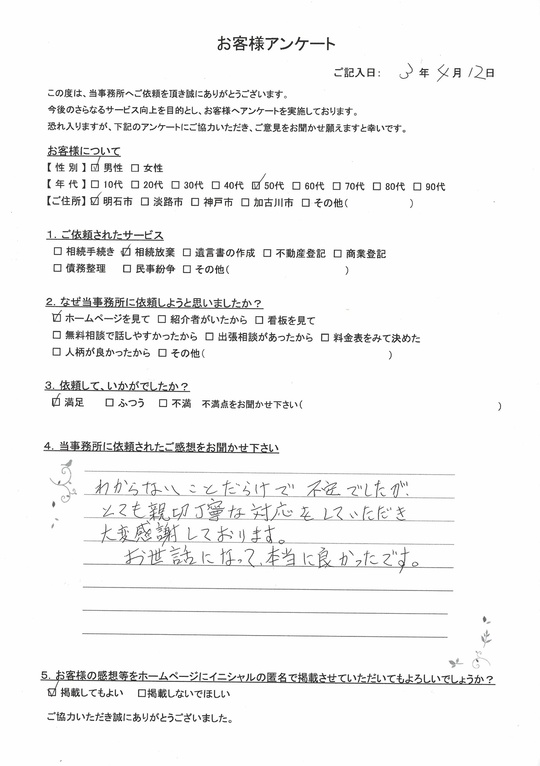 お客様アンケート
ご記入日： 3 年 4 月 12 日
この度は、当事務所へご依頼を頂き誠にありがとうございます。
今後のさらなるサービス向上を目的とし、お客様へアンケートを実施しております。
恐れ入りますが、下記のアンケートにご協力いただき、ご意見をお聞かせ願えますと幸いです。
お客様について
【 性 別 】☑ 男性 □ 女性
【 年 代 】□ 10代 □ 20代 □ 30代 □ 40代 ☑ 50代 □ 60代 □ 70代 □ 80代 □ 90代
【ご住所】☑ 明石市 □ 淡路市 □ 神戸市 □ 加古川市 □ その他（ ）
1．ご依頼されたサービス
□ 相続手続き ☑ 相続放棄 □ 遺言書の作成 □ 不動産登記 □ 商業登記
□ 債務整理 □ 民事紛争 □ その他（ ）
2．なぜ当事務所に依頼しようと思いましたか？
☑ ホームページを見て □ 紹介者がいたから □ 看板を見て
□ 無料相談で話しやすかったから □ 出張相談があったから □ 料金表をみて決めた
□ 人柄が良かったから □ その他（ ）
3．依頼して、いかがでしたか？
☑ 満足 □ ふつう □ 不満 不満点をお聞かせ下さい（ ）
4．当事務所に依頼されたご感想をお聞かせ下さい
わからないことだらけで 不安でしたが、
とても親切丁寧な対応をしていただき
大変感謝しております。
お世話になって、本当に良かったです。
5．お客様の感想等をホームページにイニシャルの匿名で掲載させていただいてもよろしいでしょうか？
☑ 掲載してもよい □掲載しないでほしい
ご協力いただき誠にありがとうございました。